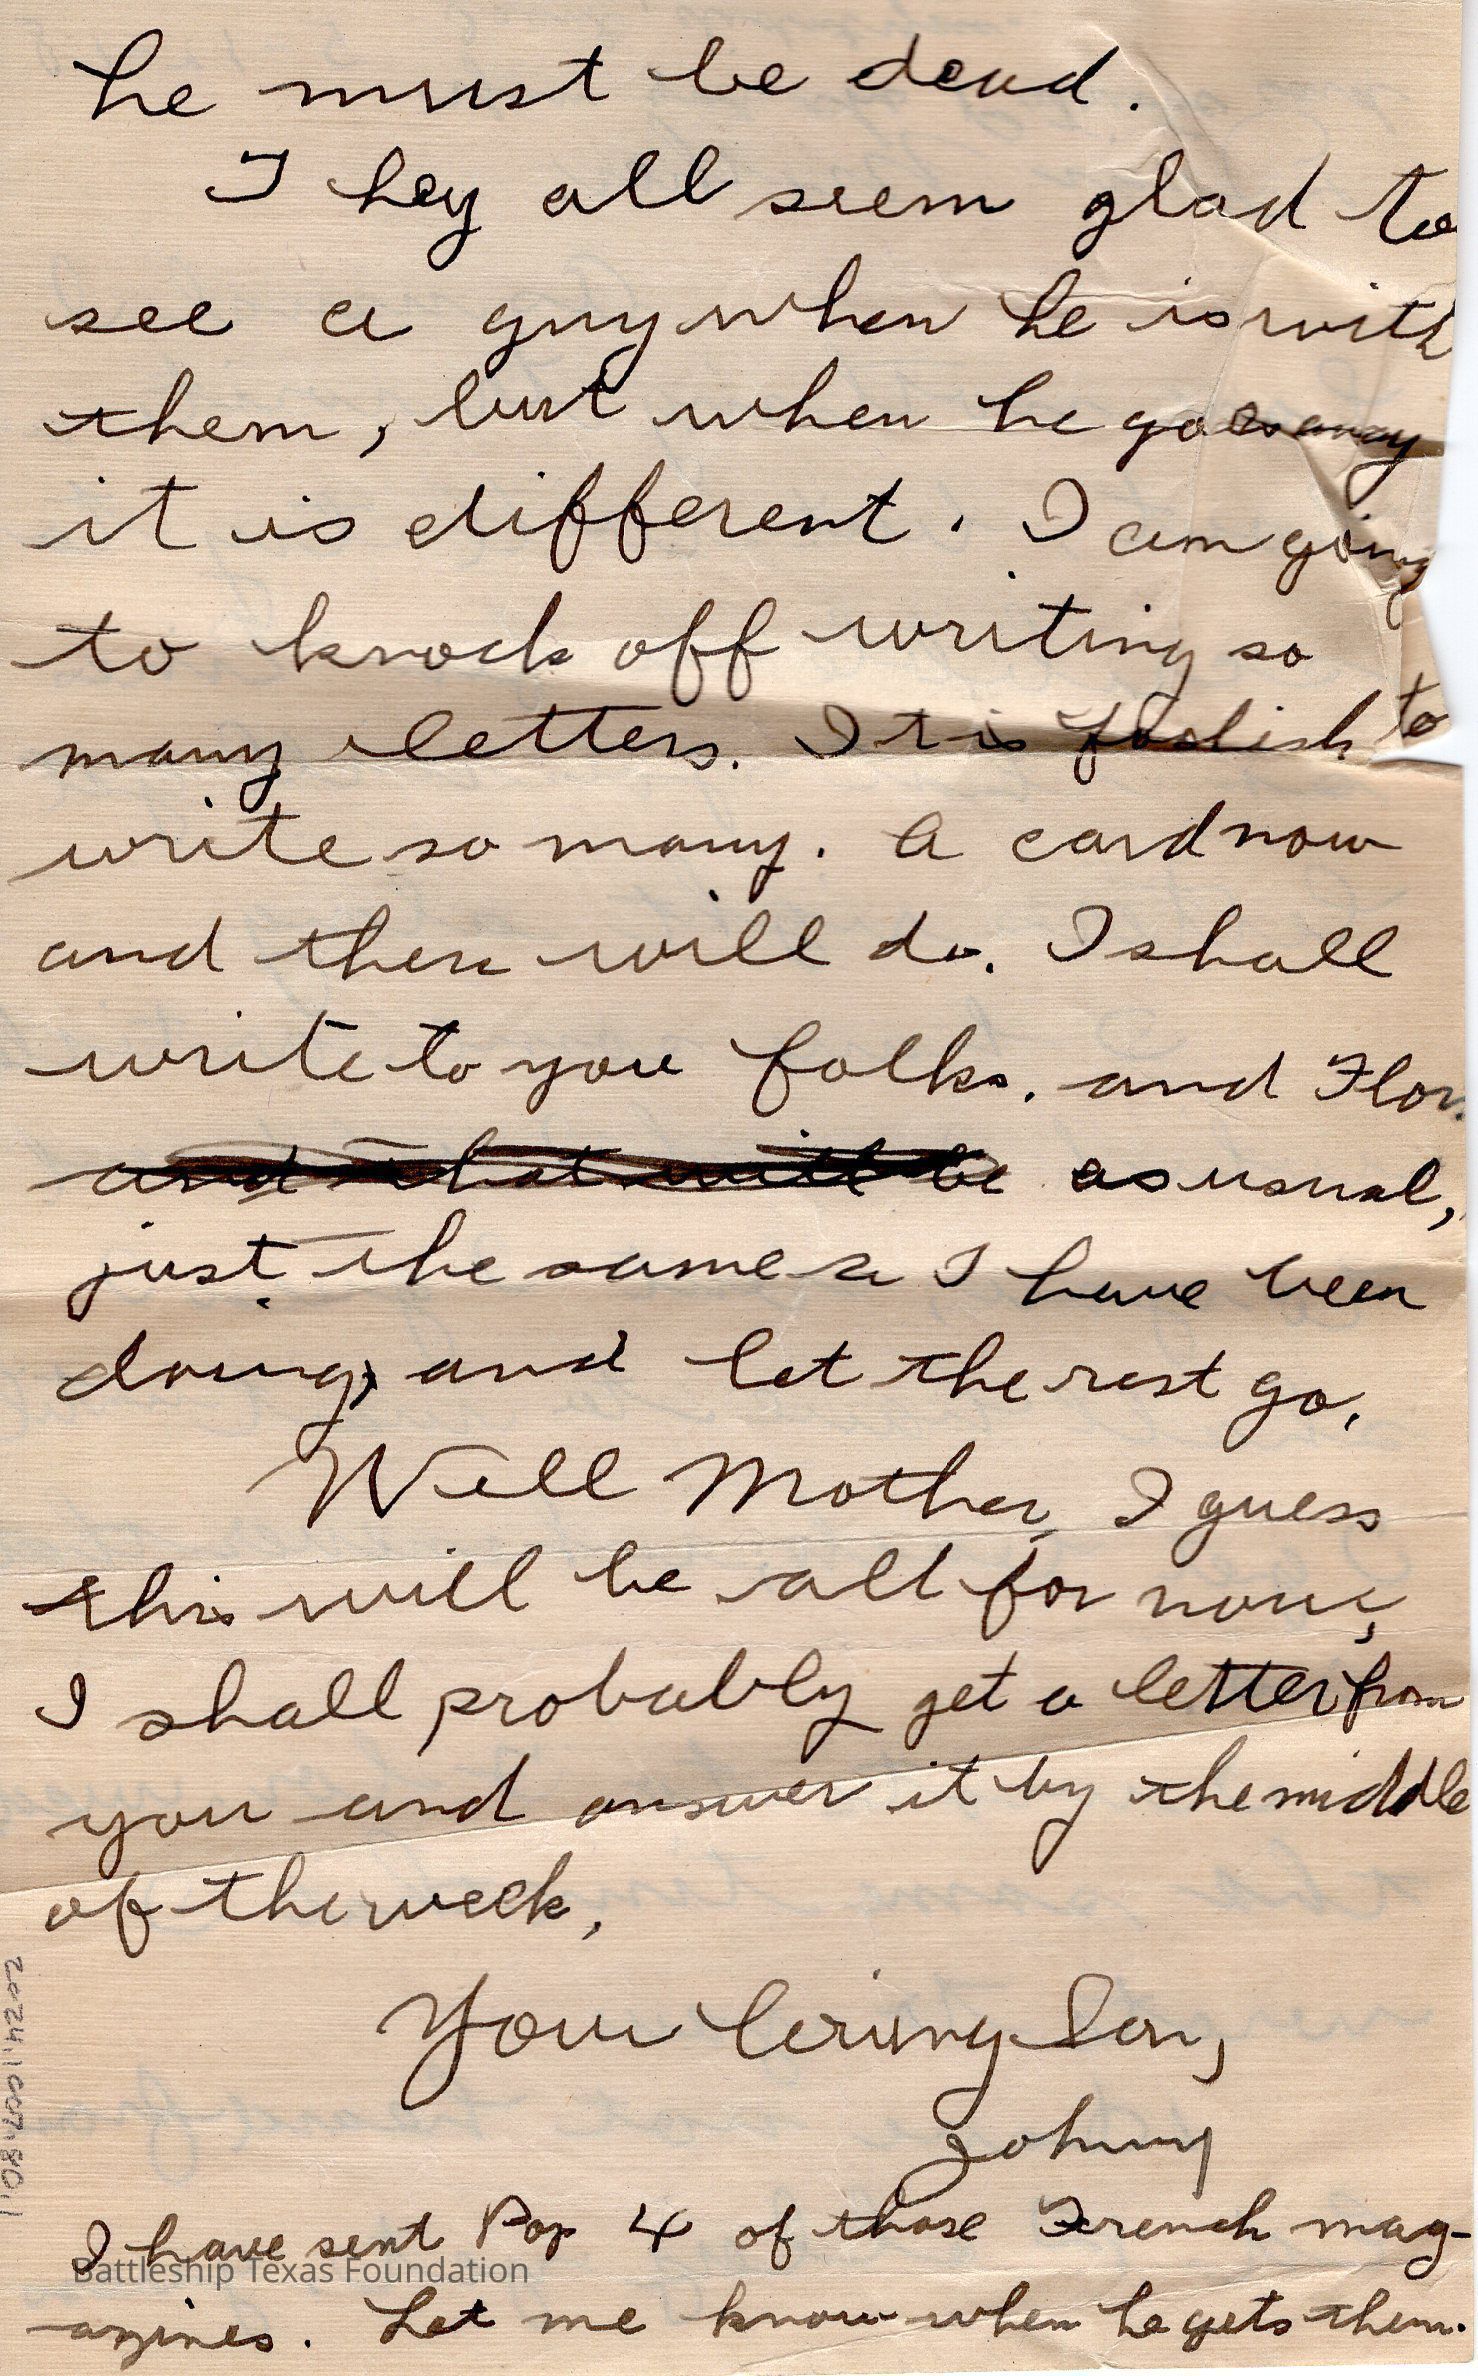 he must be dead.
They all seem glad to
see a guy when he is with
them, but when he goes away
it is different. I am going
to knock off writing so
many letters. It is foolish to
write so many. A card now
and then will do. I shall
write to you folks. and Flor.
and that will be as usual,
just the same as I have been
doing, and let the rest go.
Well Mother, I guess
this will be all for now,
I shall probably get a letter from
you and answer it by the middle
of the week.
Your loving Son,
Johnny
I have sent Pop 4 of those French mag-
azines. Let me know when he gets them.
Battleship Texas Foundation
2024.1007.80.1